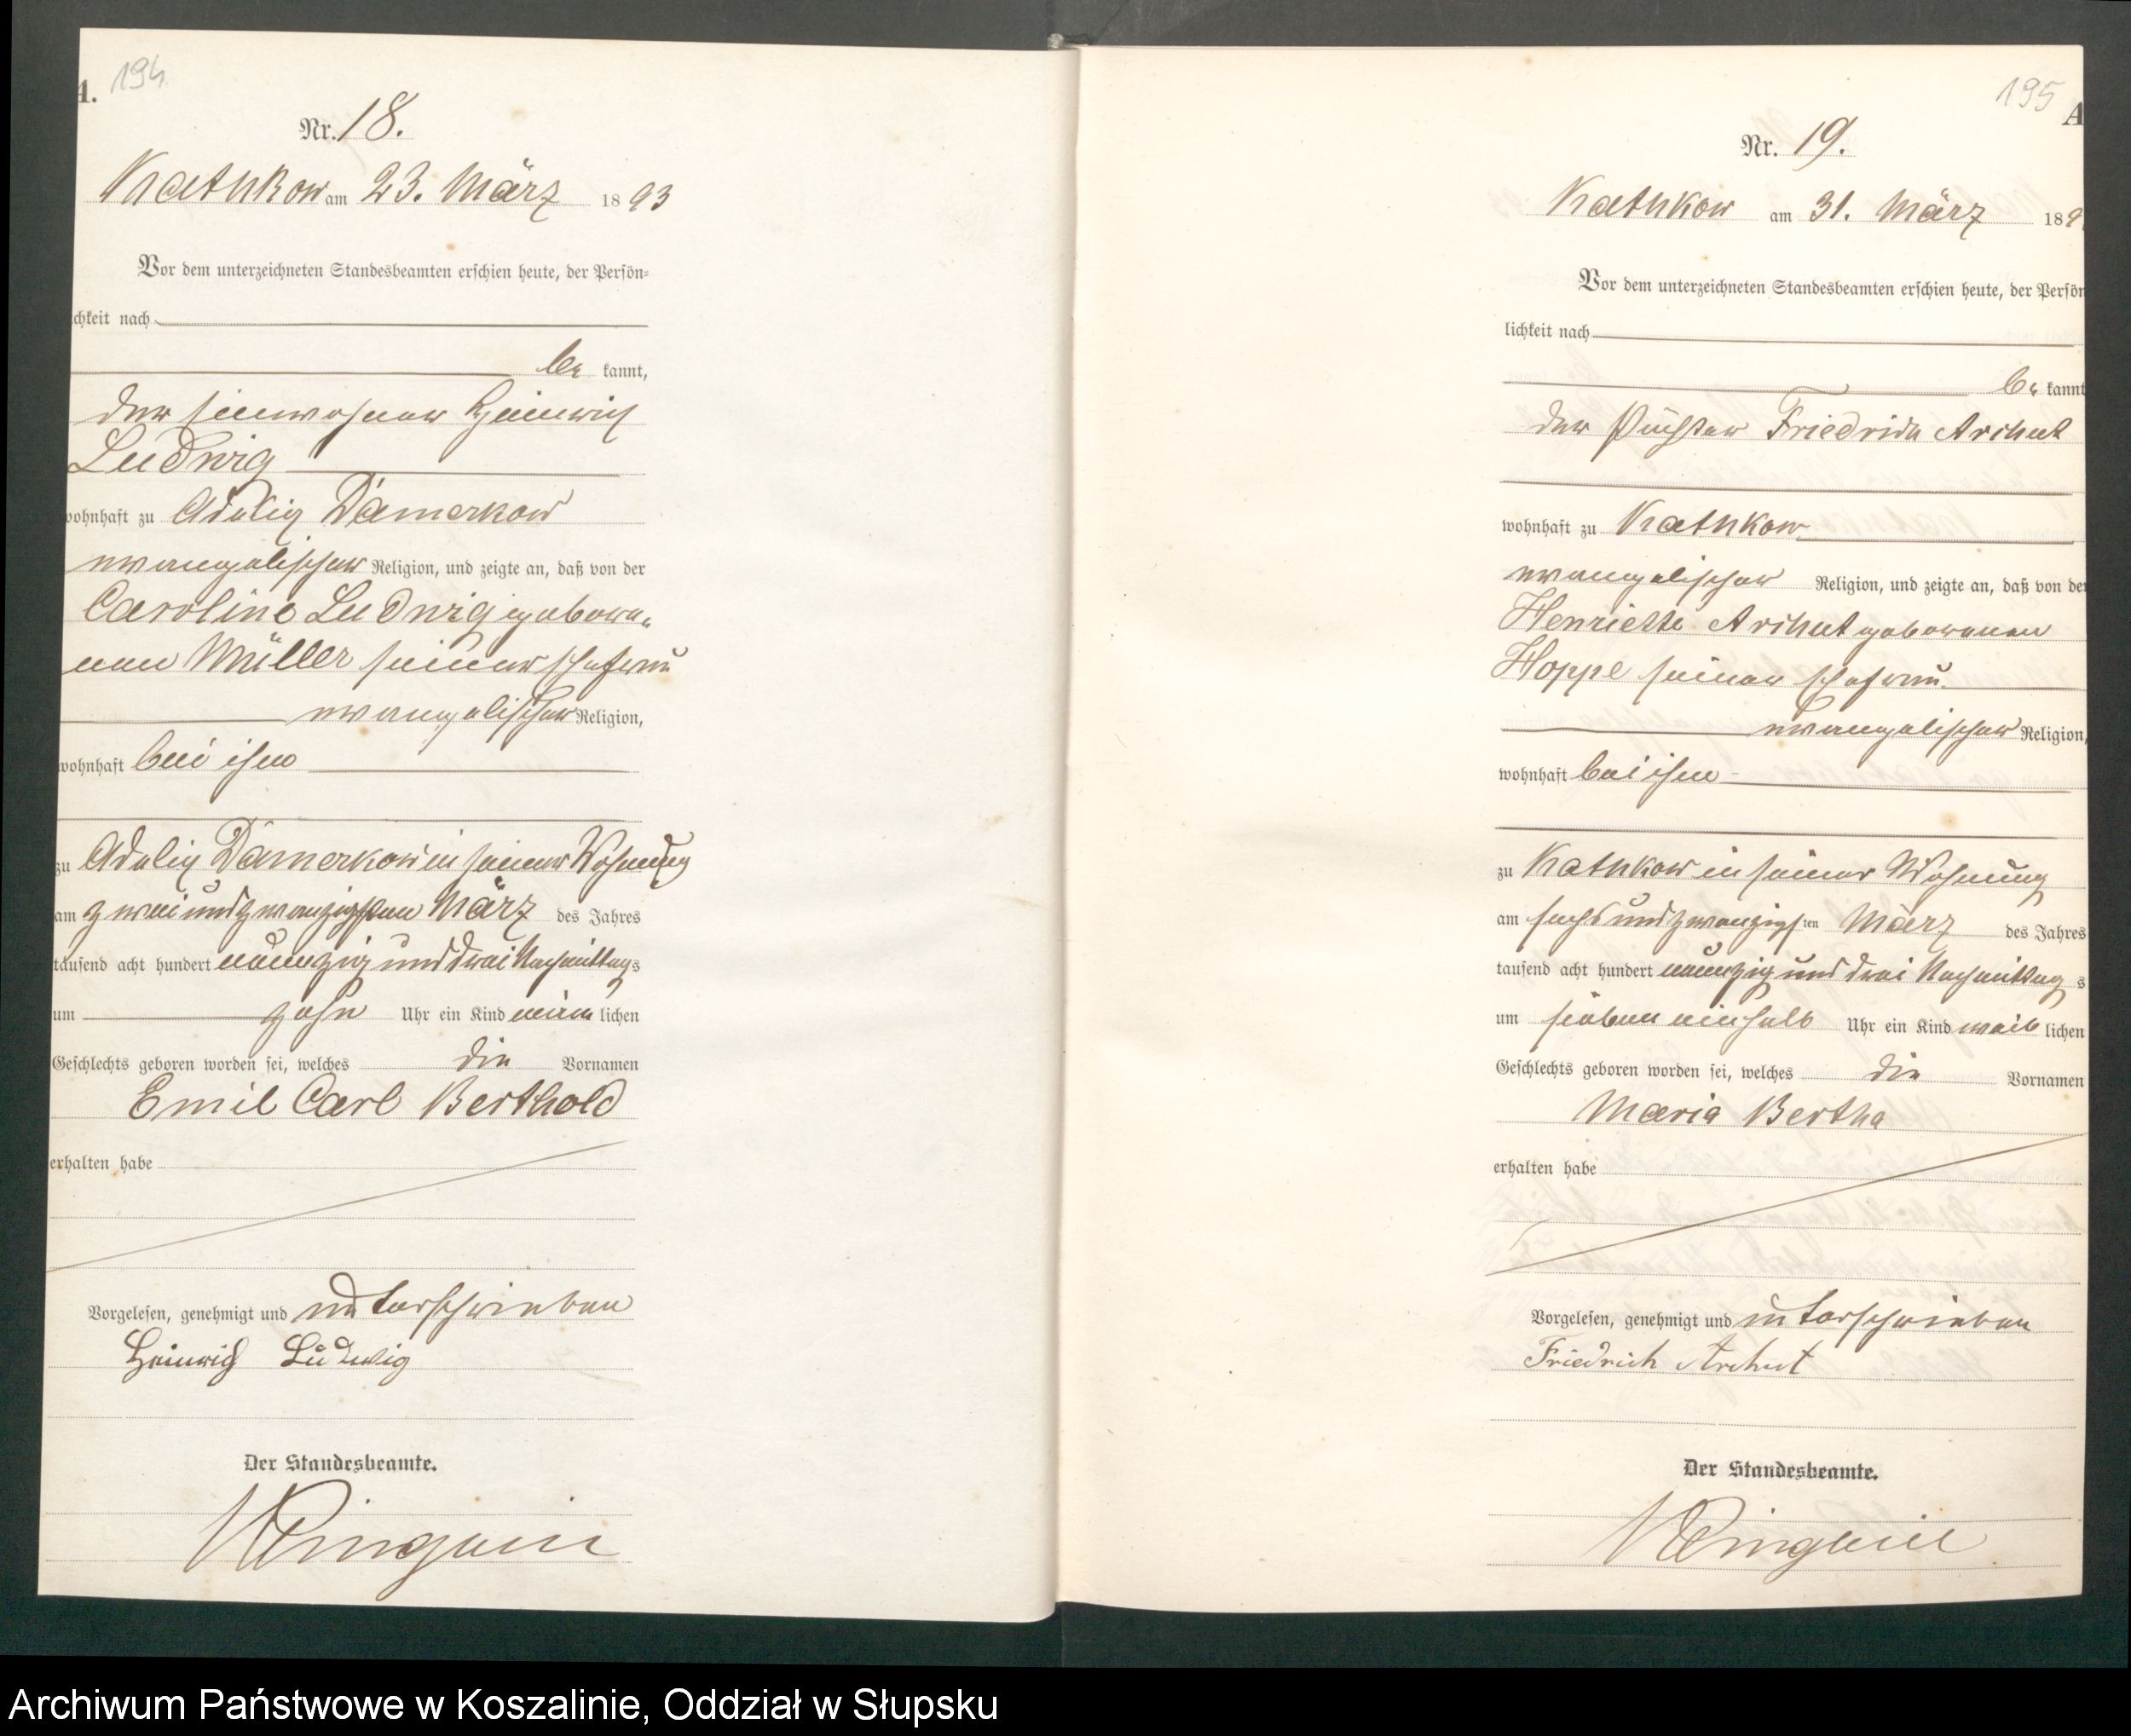 194
A.
Nr. 18.
Kathkow am 23. März 1893
Vor dem unterzeichneten Standesbeamten erschien heute, der Persön-
lichkeit nach
be kannt,
der Einwohner Heinrich
Ludwig
wohnhaft zu Adelig Damerkow
evangelischer Religion, und zeigte an, daß von der
Caroline Ludwig gebore-
nen Müller seiner Ehefrau
evangelischer Religion,
wohnhaft bei ihm
zu Adelig Damerkow in seiner Wohnung
am zweiundzwanzigsten März des Jahres
tausend acht hundert neunzig und drei Nachmittags
um zehn Uhr ein Kind männ lichen
Geschlechts geboren worden sei, welches die Vornamen
Emil Carl Berthold
erhalten habe
Vorgelesen, genehmigt und unterschrieben
Heinrich Ludwig
Der Standesbeamte.
195
A
Nr. 19.
Kathkow am 31. März 189
Vor dem unterzeichneten Standesbeamten erschien heute, der Persön
lichkeit nach
be kannt
der Friedrich Archut
wohnhaft zu Kathkow
evangelischer Religion, und zeigte an, daß von der
Henriette Archut geborenen
Hoppe seiner Ehefrau
evangelischer Religion,
wohnhaft bei ihm
zu Kathkow in seiner Wohnung
am sechsundzwanzigsten März des Jahres
tausend acht hundert neunzig und drei Nachmittag s
um sieben einhalb Uhr ein Kind weib lichen
Geschlechts geboren worden sei, welches die Vornamen
Maria Bertha
erhalten habe
Vorgelesen, genehmigt und unterschrieben
Friedrich Archut
Der Standesbeamte.
Archiwum Państwowe w Koszalinie, Oddział w Słupsku